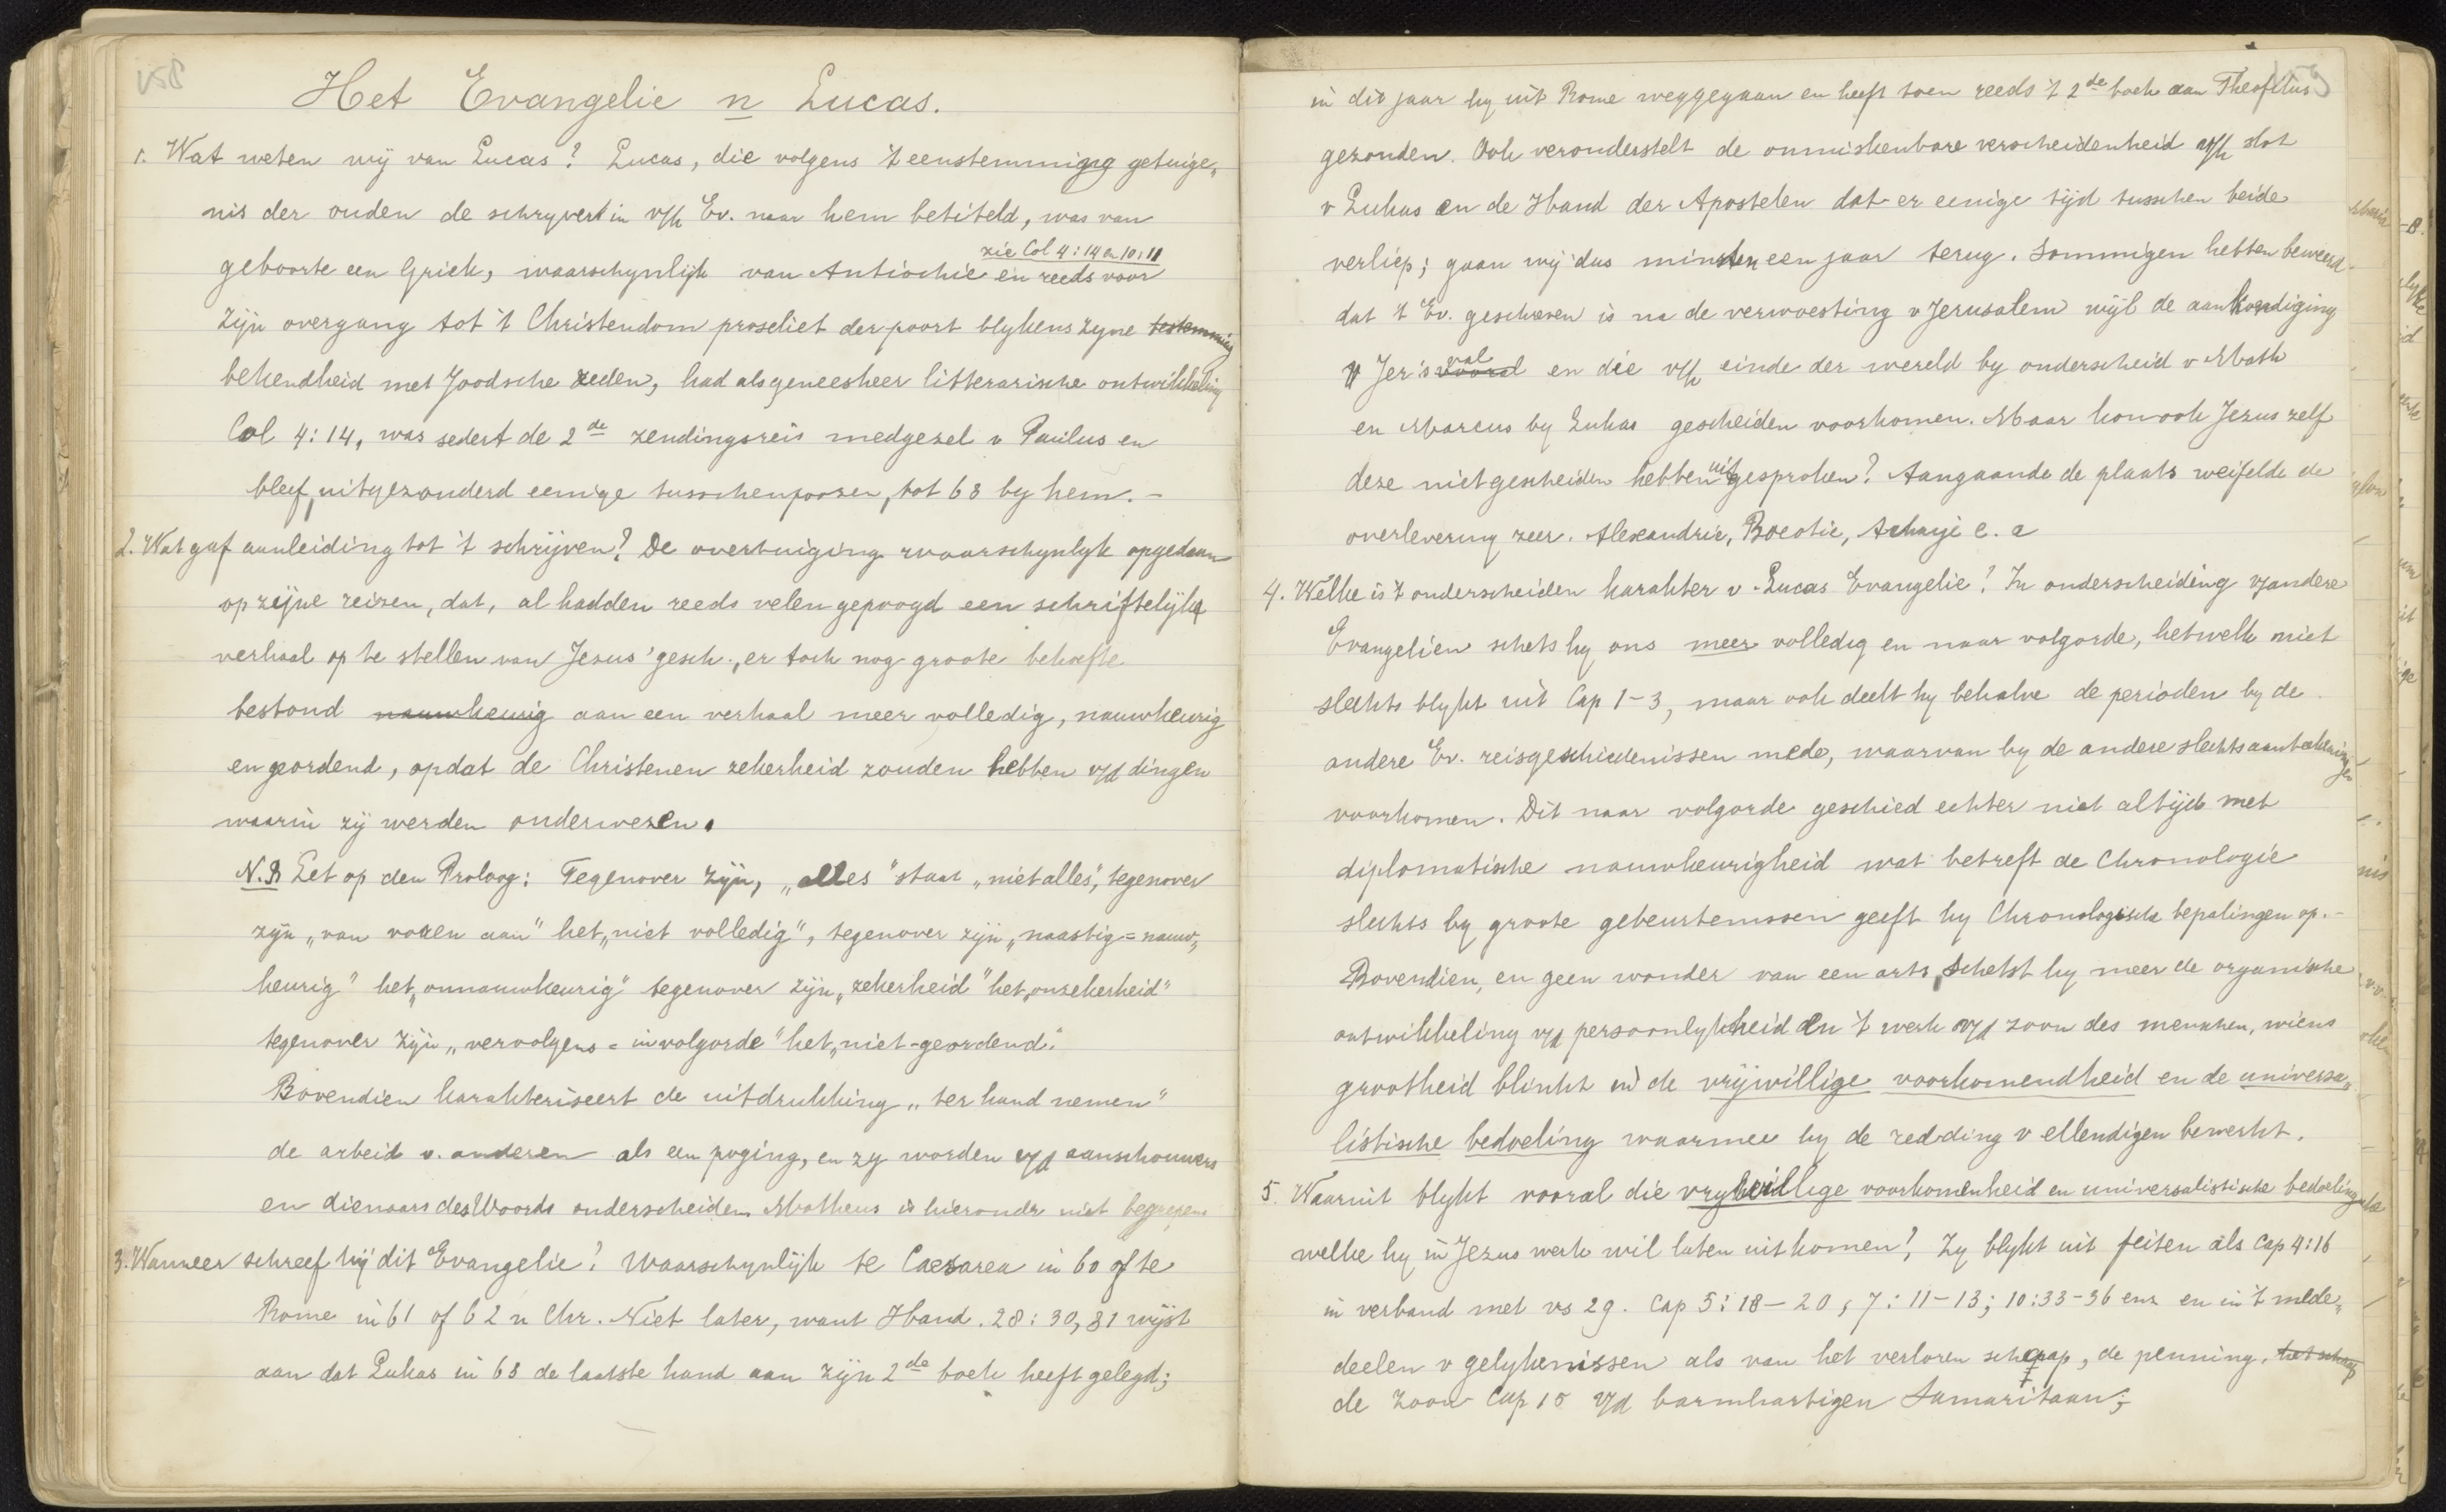 158
Het Evangelie n Lucas.
1. Wat weten wij van Lucas? Lucas, die volgens 't eenstemmige getuige„
nis der ouden de schryver in v/h Ev. naar hem betiteld, was van
zie Col 4:14 a 10:11
geboorte een Griek, waarschynlijk van Antiochie en reeds voor
zijn overgang tot 't Christendom proseliet der poort blykens zyne
bekendheid met Joodsche zeden, had als geneesheer litterarische ontwikkeling
Col 4:14, was sedert de 2de zendingsreis medgezel v Paulus en
bleef, uitgezonderd eenige tusschenpoozen, tot 63 by hem. –
2. Wat gaf aanleiding tot 't schrijven? De overtuiging waarschynlyk opgedaan
op zijne reizen, dat, al hadden reeds velen gepoogd een schriftelijk
verhaal op te stellen van Jezus' gesch., er toch nog groote behoefte
bestond nauwkeurig aan een verhaal meer volledig, nauwkeurig
en geordend, opdat de Christenen zekerheid zouden hebben v/d dingen
waarin zij werden onderwezen.
N.B Let op den Proloog: Tegenover zijn, „alles" staat „niet alles", tegenover
zijn „van voren aan" het „niet volledig", tegenover zijn „naastig = nauw„
keurig" het „onnauwkeurig" tegenover zijn „zekerheid" het „onzekerheid"
tegenover zijn „vervolgens = in volgorde" het „niet-geordend."
Bovendien karakteriseert de uitdrukking „ter hand nemen"
de arbeid v. anderen als een poging, en zy worden v/d aanschouwers
en dienaars des Woords onderscheiden Matheus is hieronder niet begrepen
3. Wanneer schreef hij dit Evangelie? Waarschynlijk te Caesarea in 60 of te
Rome in 61 of 62 n Chr. Niet later, want Hand. 28:30,31 wijst
aan dat Lukas in 63 de laatste hand aan zijn 2de boek heeft gelegd;
159
in dit jaar hy uit Rome weggegaan en heeft toen reeds 't 2de boek aan Theofilus
gezonden. Ook veronderstelt de onmiskenbare verscheidenheid v/h slot
v Lukas en de Hand der Apostelen dat er eenige tijd tusschen beide
verliep; gaan wij dus minsten een jaar terug. Sommigen hebben beweerd
dat 't Ev. geschreven is na de verwoesting v Jerusalem wijl de aankondiging
v Jer's val en die v/h einde der wereld by onderscheid v Math
en Marcus by Lukas gescheiden voorkomen. Maar kon ook Jezus zelf
deze niet gescheiden hebben uitgesproken? Aangaande de plaats weifelde de
overlevering zeer. Alexandrie, Boeotie, Achaje e. a
4. Welke is 't onderscheiden karakter v. Lucas Evangelie? In onderscheiding v/andere
Evangelien schets hy ons meer volledig en naar volgorde, hetwelk niet
slechts blykt uit Cap 1-3, maar ook deelt hy behalve de perioden by de
andere Ev. reisgeschiedenissen mede, waarvan by de andere slechts aanteekeningen
voorkomen. Dit naar volgorde geschied echter niet altijd met
diplomatische nauwkeurigheid wat betreft de Chronologie
slechts by groote gebeurtenissen geeft hy Chronologische bepalingen op. –
Bovendien, en geen wonder van een arts, schetst hy meer de organische
ontwikkeling v/d persoonlykheid en 't werk v/d zoon des menschen, wiens
grootheid blinkt in de vrijwillige voorkomendheid en de universa„
listische bedoeling waarmee hy de redding v ellendigen bewerkt.
5. Waaruit blykt vooral die vrywillige voorkomenheid en universalistische bedoeling
welke hy in Jezus werk wil laten uitkomen? Zy blykt uit feiten als Cap 4:16
in verband met vs 29. Cap 5:18-20; 7:11-13; 10:33-36 enz en in 't mede„
deelen v gelykenissen als van het verloren schaap, de penning, het schaap
de zoon Cap 15 v/d barmhartigen Samaritaan;